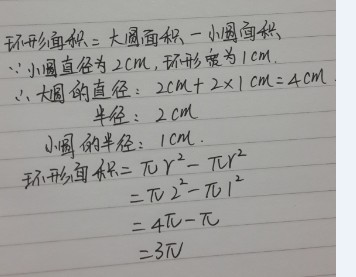 环形面积=大圆面积-小圆面积
∵小圆直径为2cm,环形宽为1cm.
∴大圆的直径:2cm+2×1cm=4cm
半径:2cm
小圆的半径:1cm.
环形面积=πr²-πr²
=π2²-π1²
=4π-π
=3π